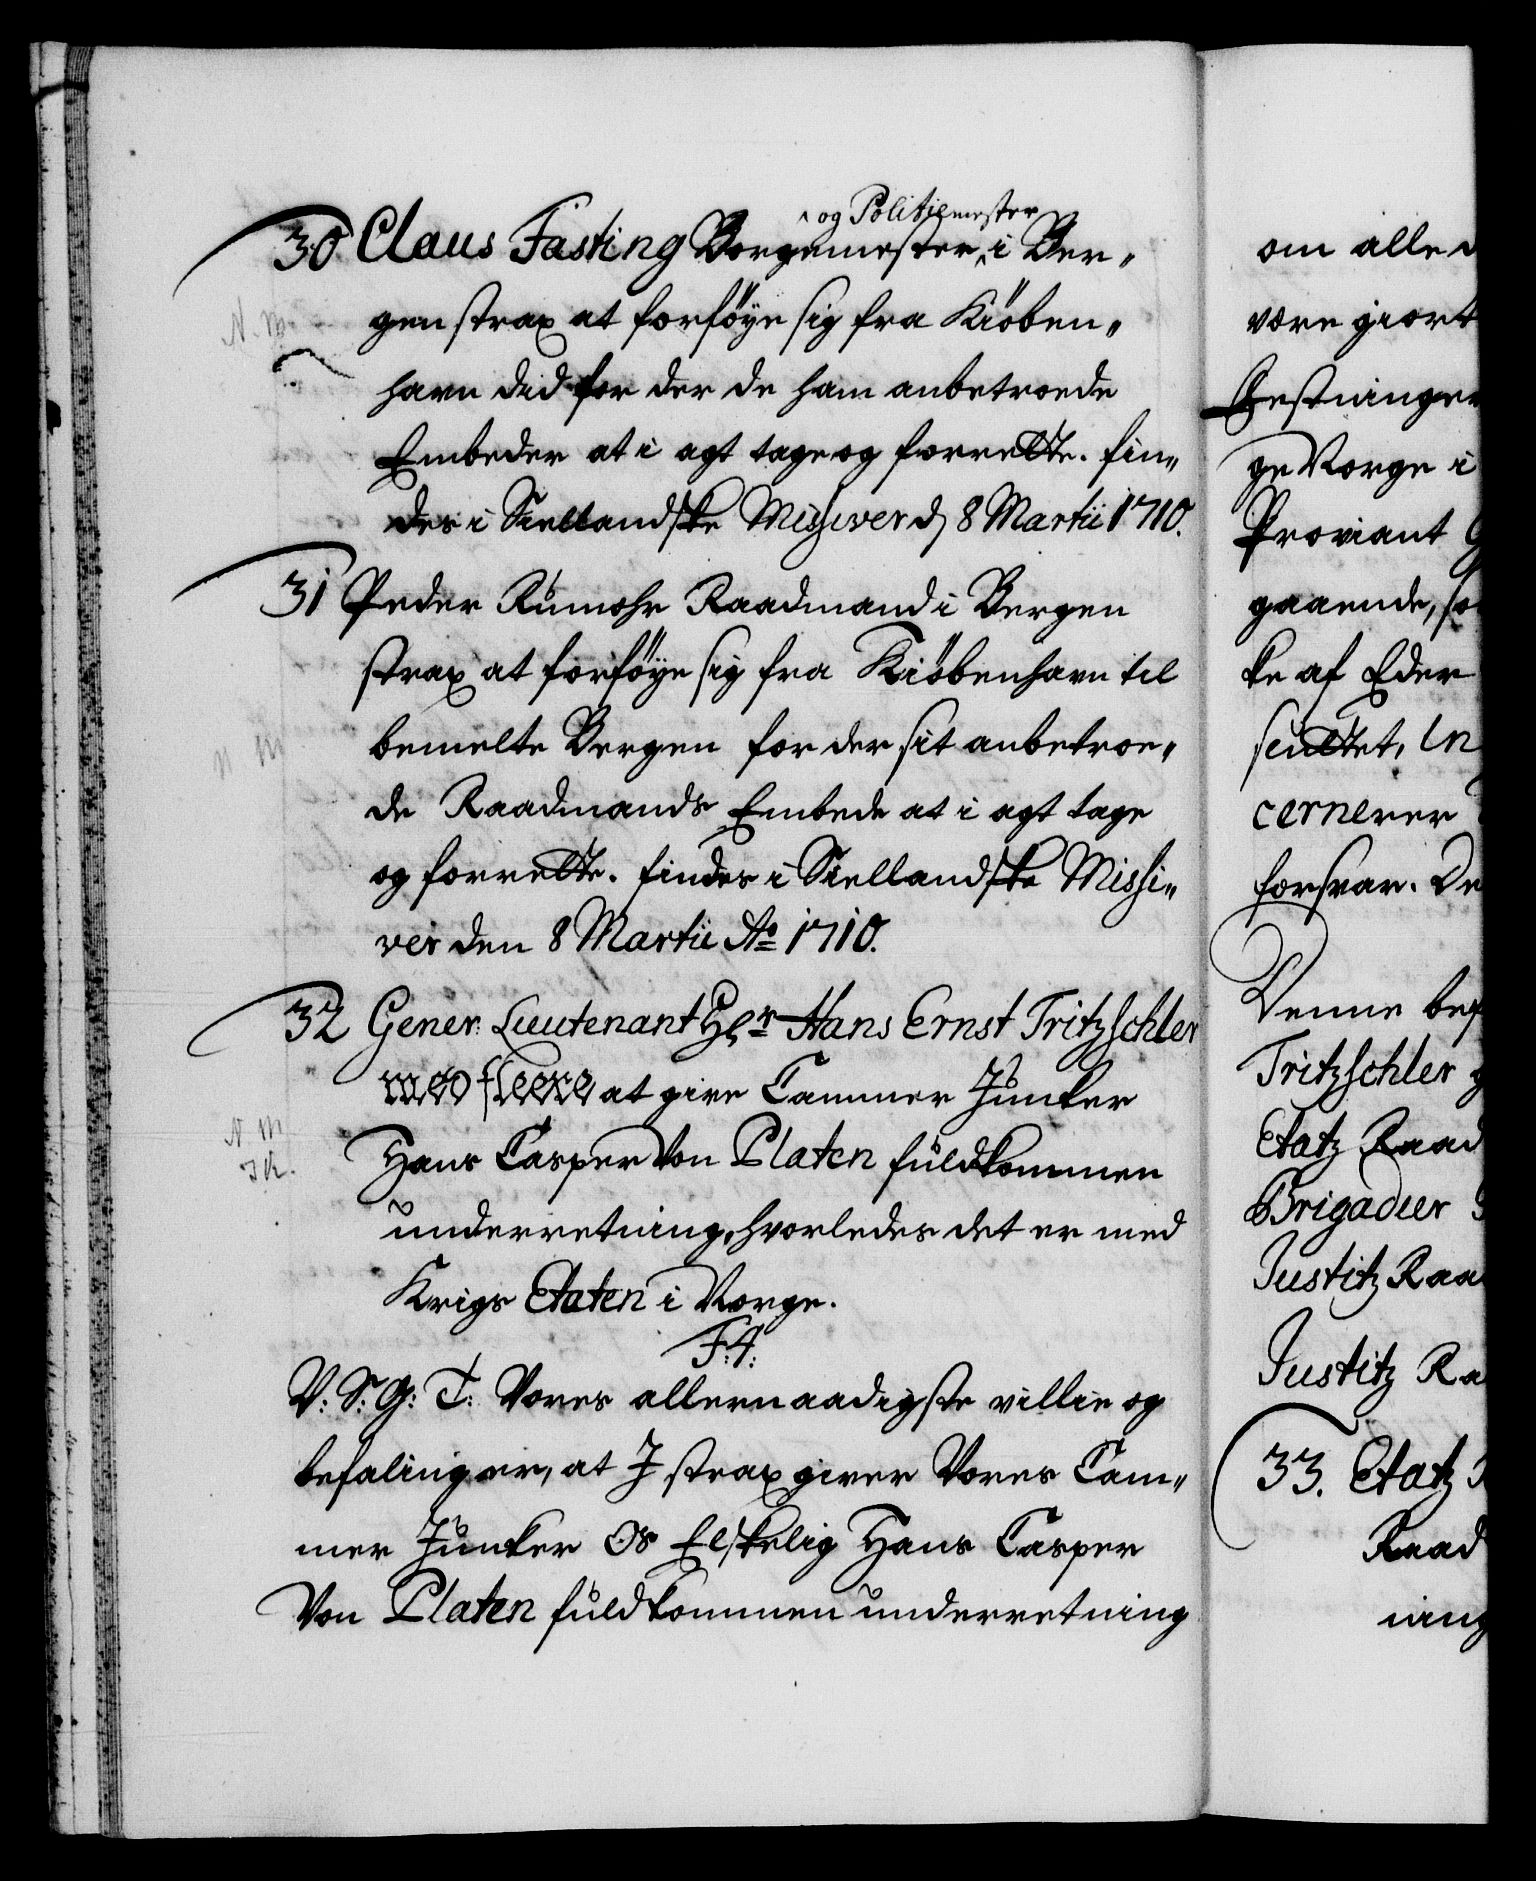 30. Claus Fasting Borgemester, ^og Politiemester i Ber„
gen strax at forføye sig fra Kiøben„
havn did for der de ham anbetroede
Embeder at i agt tage og forrette. fin„
des i Siellandske Missiver d. 8 Martii 1710.
31 Peder Rumohr Raadmand i Bergen
strax at forføye sig fra Kiøbenhavn til
bemelte Bergen for der sit anbetroe„
de Raadmands Embede at i agt tage
og forrette. findes i Siellandske Missi„
ver den 8 Martii Ao 1710.
32 Gener: Lieutenant Hr. Hans Ernst Tritzschler
med fleere at give Cammer Juncker
Hans Casper von Platen fuldkommen
underretning, hvorledes det er med
Krigs Etaten i Norge.
F: 4:
V: S: G: T: Vores allernaadigste villie og
befaling er, at I strax giver Vores Cam„
mer Juncker Os Elskelig Hans Casper
von Platen fuldkommen underretning
N. M.
N M
N M
J K.
om alle
være giort
Festninger
ge Norge i
Proviant
gaaende, so
ke af Eder
senttet, In
cernerer
forsvar. De
Denne bef
Tritzschler
Etatz Raad
Brigadier
Justitz Raa
Justitz Ra
33. Etatz
Raad
ning